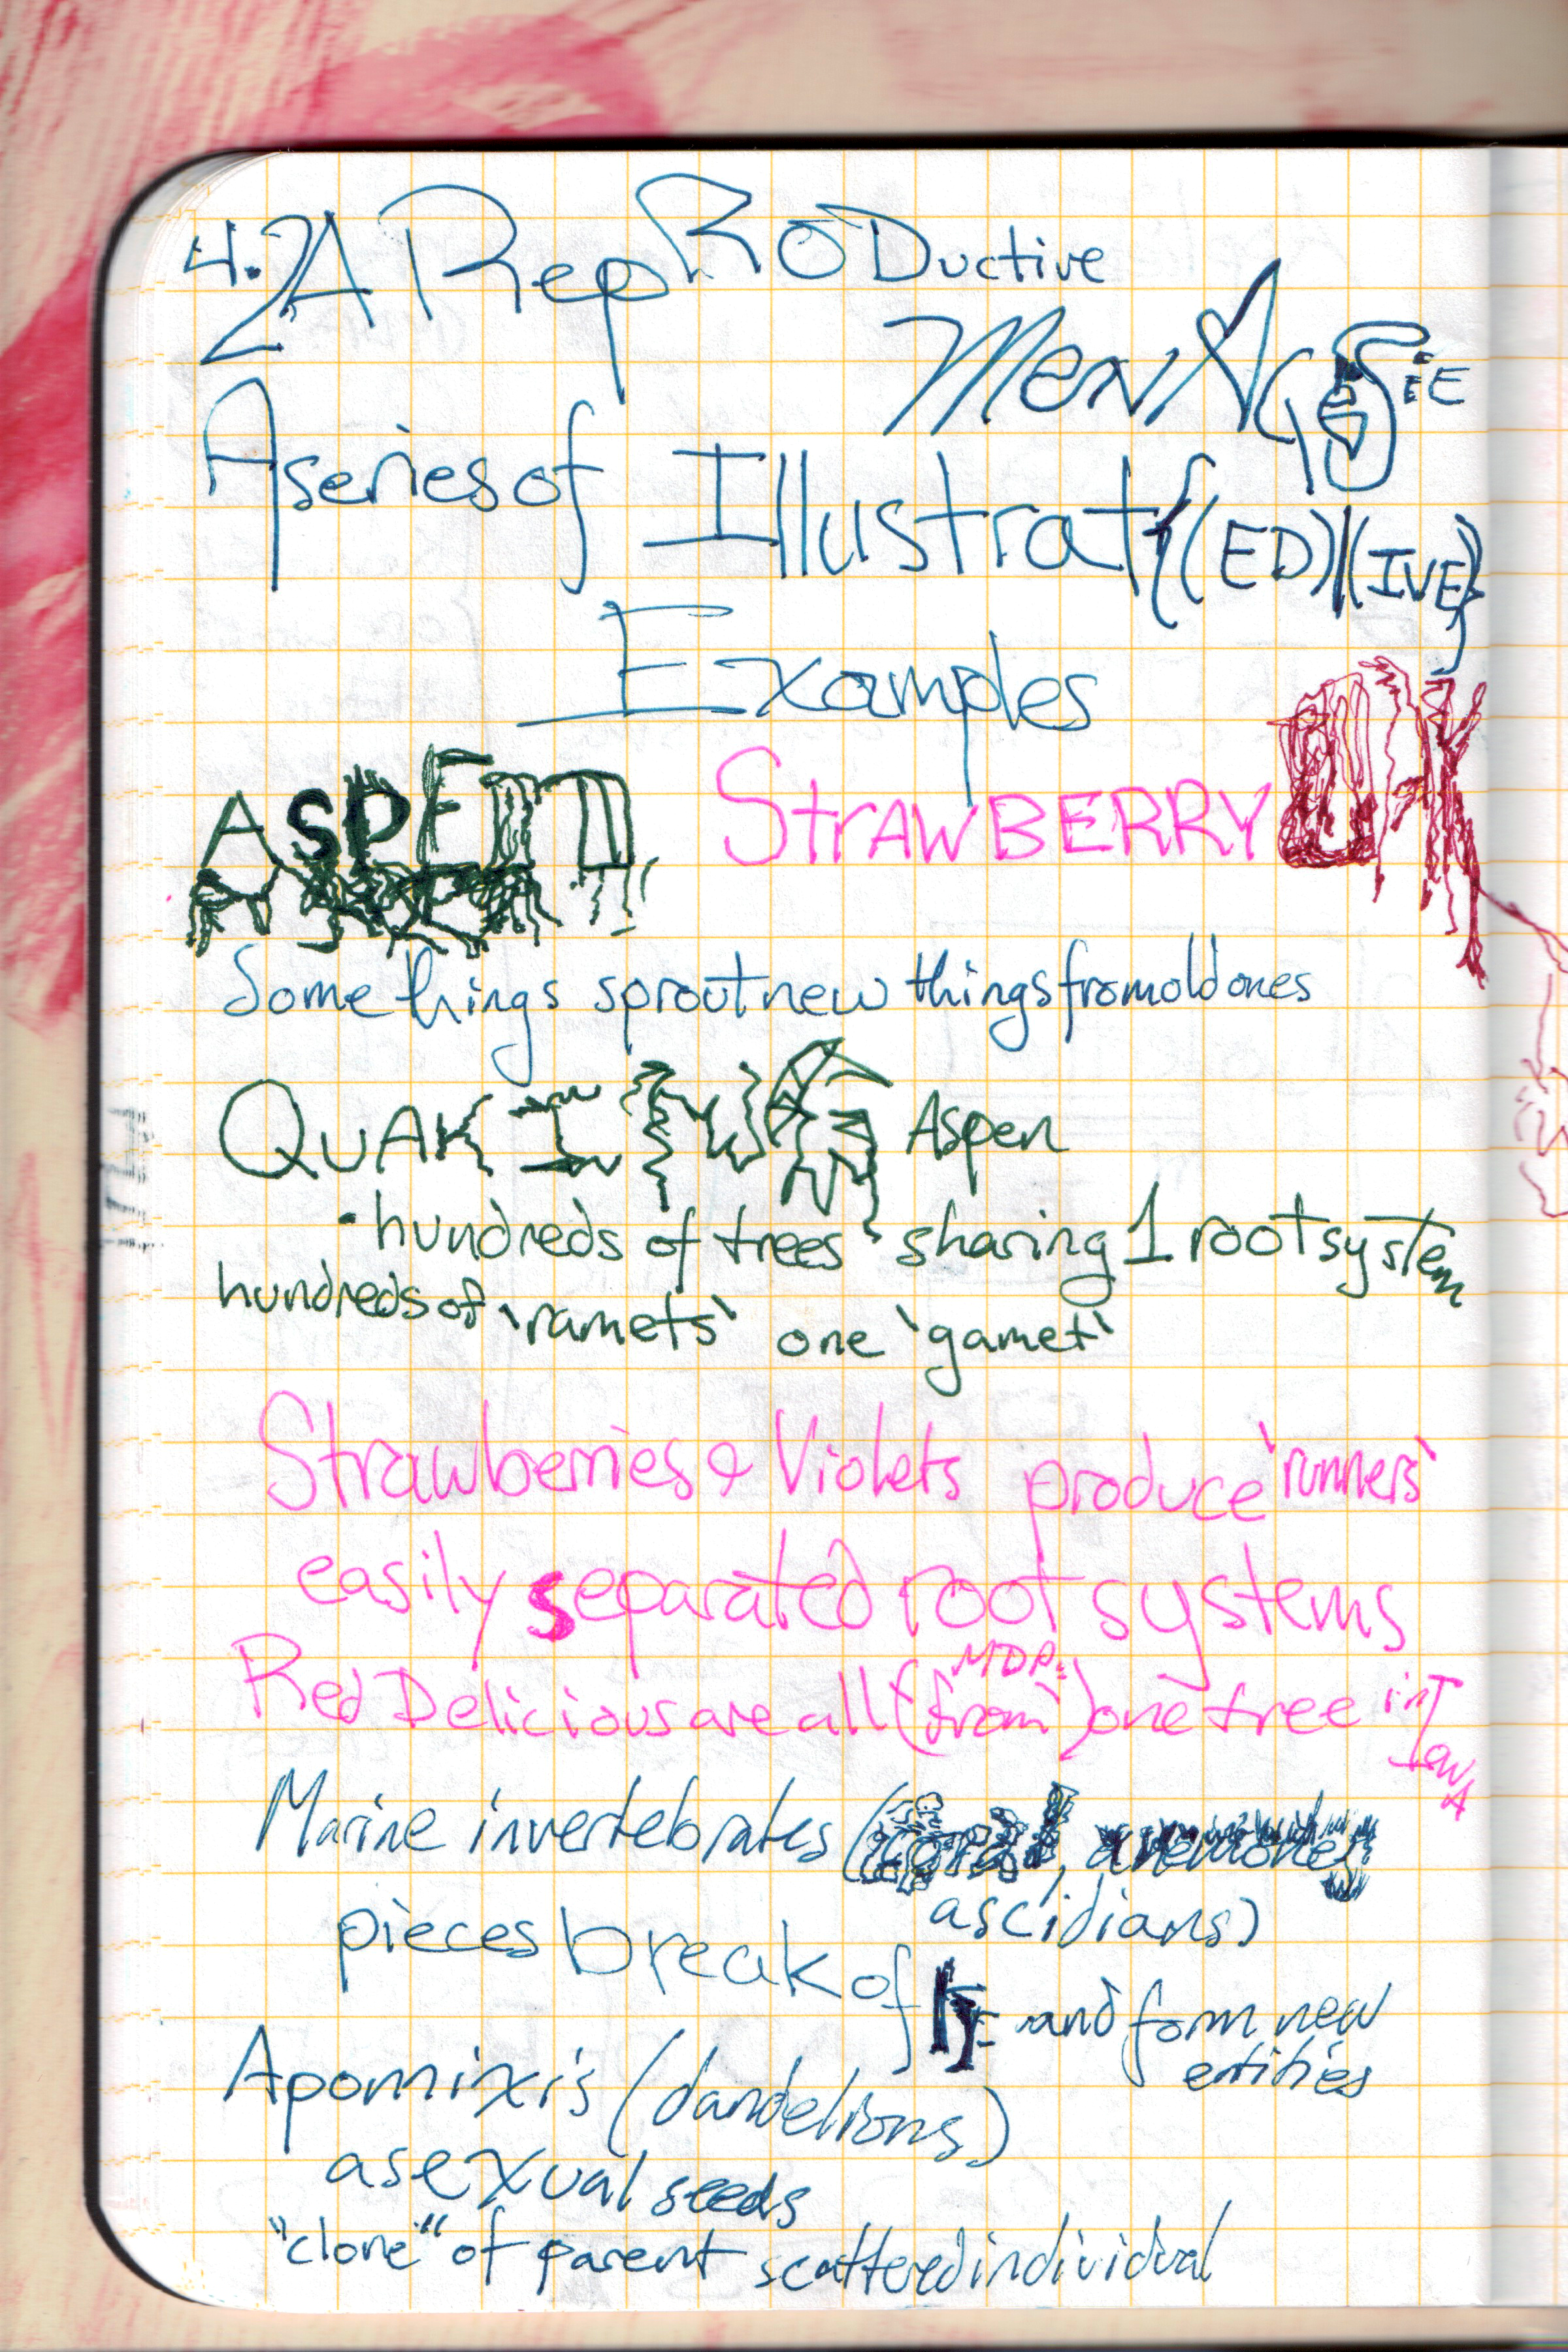 4.2 A RepRODuctive
MenAgerie
A series of Illustrat{(ED)|(IVE)}
Examples
ASPEN STrAWBERRY OAK
Some things sprout new things from old ones
QUAKING Aspen
• hundreds of trees sharing 1 root system
hundreds of 'ramets' one 'gamet'
Strawberries & Violets produce 'runners'
easily separated root systems
Red Delicious are all (from MDR:) one tree in IowA
Marine invertebrates (coral, anemones,
ascidians)
pieces break off and form new
entities
Apomixis (dandelions)
asexual seeds
"clone" of parent scattered individual